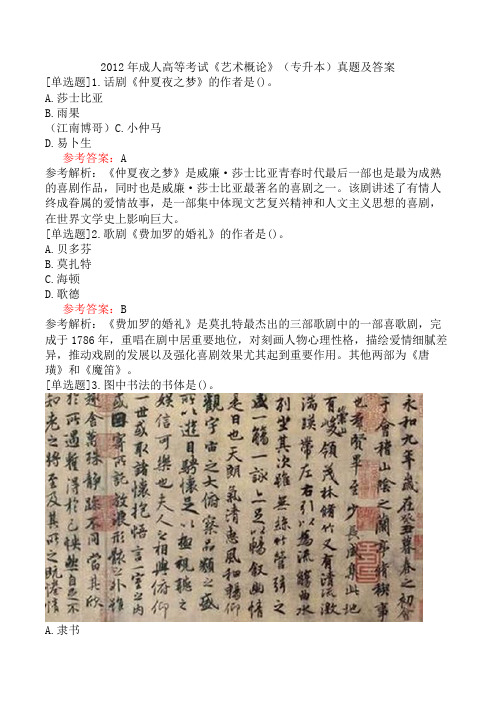 2012年成人高等考试《艺术概论》（专升本）真题及答案
[单选题]1.话剧《仲夏夜之梦》的作者是()。
A.莎士比亚
B.雨果
（江南博哥）C.小仲马
D.易卜生
参考答案：A
参考解析：《仲夏夜之梦》是威廉·莎士比亚青春时代最后一部也是最为成熟
的喜剧作品，同时也是威廉·莎士比亚最著名的喜剧之一。该剧讲述了有情人
终成眷属的爱情故事，是一部集中体现文艺复兴精神和人文主义思想的喜剧，
在世界文学史上影响巨大。
[单选题]2.歌剧《费加罗的婚礼》的作者是()。
A.贝多芬
B.莫扎特
C.海顿
D.歌德
参考答案：B
参考解析：《费加罗的婚礼》是莫扎特最杰出的三部歌剧中的一部喜歌剧，完
成于1786年，重唱在剧中居重要地位，对刻画人物心理性格，描绘爱情细腻差
异，推动戏剧的发展以及强化喜剧效果尤其起到重要作用。其他两部为《唐
璜》和《魔笛》。
[单选题]3.图中书法的书体是()。
永和九年歲在癸丑暮春之初會
于會稽山陰之蘭亭脩稧事
也群賢畢至少長咸集此地
有崇山峻領茂林脩竹又有清流激
湍暎帶左右引以為流觴曲水
列坐其次雖無絲竹管弦之
盛一觴一詠上足以暢敘幽情
是日也天朗氣清惠風和暢仰
觀宇宙之大俯察品類之盛
所以遊目騁懷足以極視聽之
娛信可樂也夫人之相與俯仰
一世或取諸懷抱悟言一室之內
或因寄所託放浪形骸之外雖
趣舍萬殊靜躁不同當其欣
於所遇蹔得於己怏然自足不
知老之將至及其所之既惓情
A.隶书